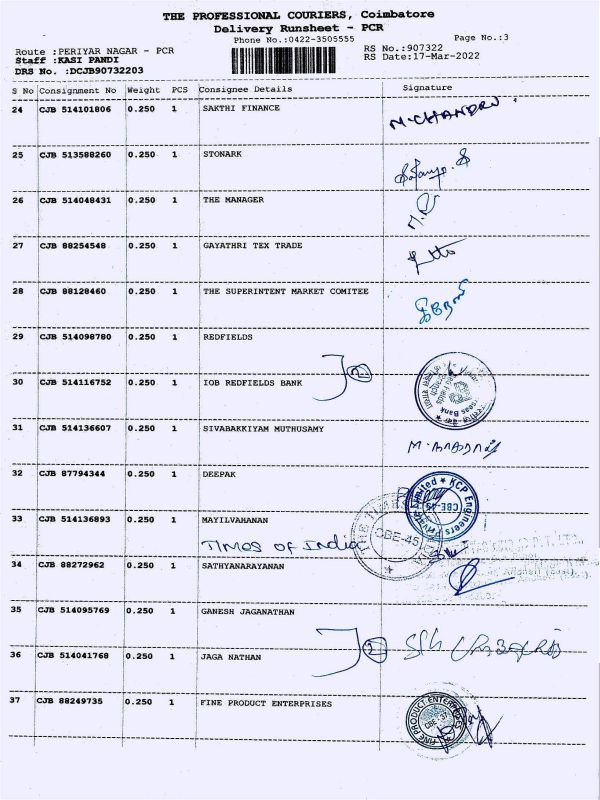 THE PROFESSIONAL COURIERS, Coimbatore
Delivery Runsheet - PCR
Phone No.:0422-3505555
Page No.:3
Route :PERIYAR NAGAR - PCR
RS No.:907322
Staff :KASI PANDI
RS Date:17-Mar-2022
DRS No. :DCJB90732203
S No Consignment No Weight PCS Consignee Details Signature
24 CJB 514101806 0.250 1 SAKTHI FINANCE M.CHANDRU
25 CJB 513588260 0.250 1 STONARK
26 CJB 514048431 0.250 1 THE MANAGER
27 CJB 88254548 0.250 1 GAYATHRI TEX TRADE
28 CJB 88128460 0.250 1 THE SUPERINTENT MARKET COMITEE
29 CJB 514098780 0.250 1 REDFIELDS
2
30 CJB 514116752 0.250 1 IOB REDFIELDS BANK
31 CJB 514136607 0.250 1 SIVABAKKIYAM MUTHUSAMY
32 CJB 87794344 0.250 1 DEEPAK
KCP Engineers Private Limited
CBE-45
33 CJB 514136893 0.250 1 MAYILVAHANAN
TIMES OF India
CBE-45
34 CJB 88272962 0.250 1 SATHYANARAYANAN
35 CJB 514095769 0.250 1 GANESH JAGANATHAN
2
36 CJB 514041768 0.250 1 JAGA NATHAN
37 CJB 88249735 0.250 1 FINE PRODUCT ENTERPRISES
FINE PRODUCT ENTERPRISES